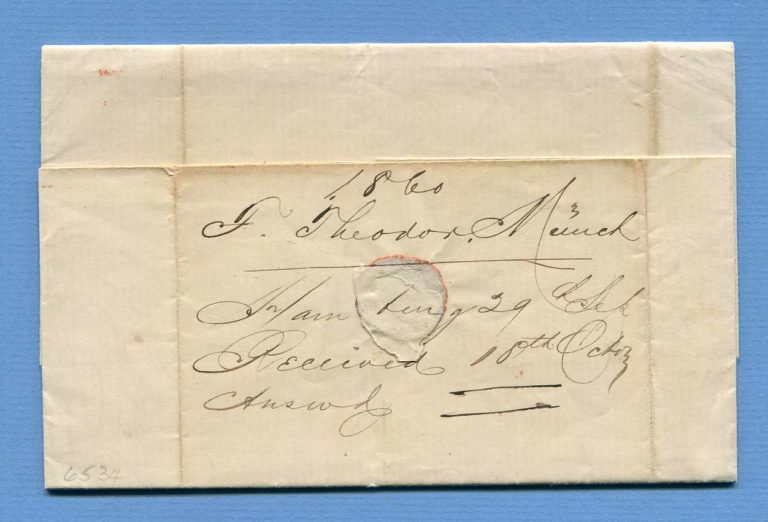 1860
F. Theodor. Münch
Hamburg 29th Sep
Received 18th Octr
Answd
6534